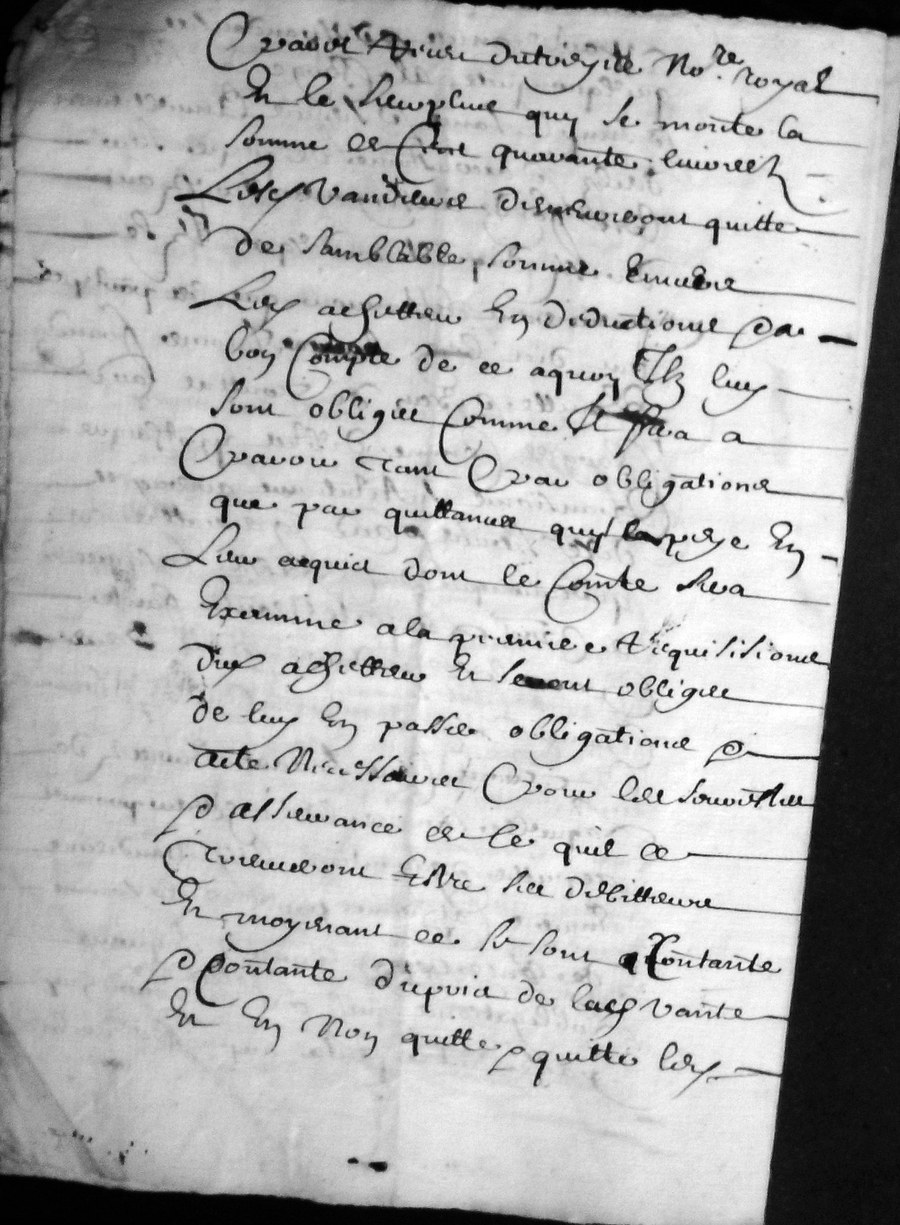 royal No.re
Et le surplus quy se monte la
somme de Cent quarante livres tz
Lesd vandeurs demeureront quitte
de samblable somme Envers
Lesd achetteur En deduction et a
bon Compte de ce aquoy Ilz luy
sont obliges Comme Il sera a
obligations
que par quittances quy En
Leur acquict dont le Compte sera
Examine a la premiere requisitione
Dud achetteur Et seront obliges
de luy En passer obligations et
acte Necessaires les
et assurance de ce quil ce
Estre ses debitteurs
Et moyenant ce se sont Contante
et Contante depuis de lad vante
Et En Non quitte et quitte led